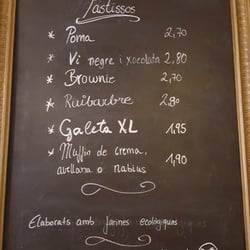 Pastissos
* Poma 2,70
* Vi negre i xocolata 2,80
* Brownie 2,70
* Ruibarbre 2,80
* Galeta XL 1,95
* Muffin de crema, avellana o nabius 1,90
Elaborats amb farines ecològiques